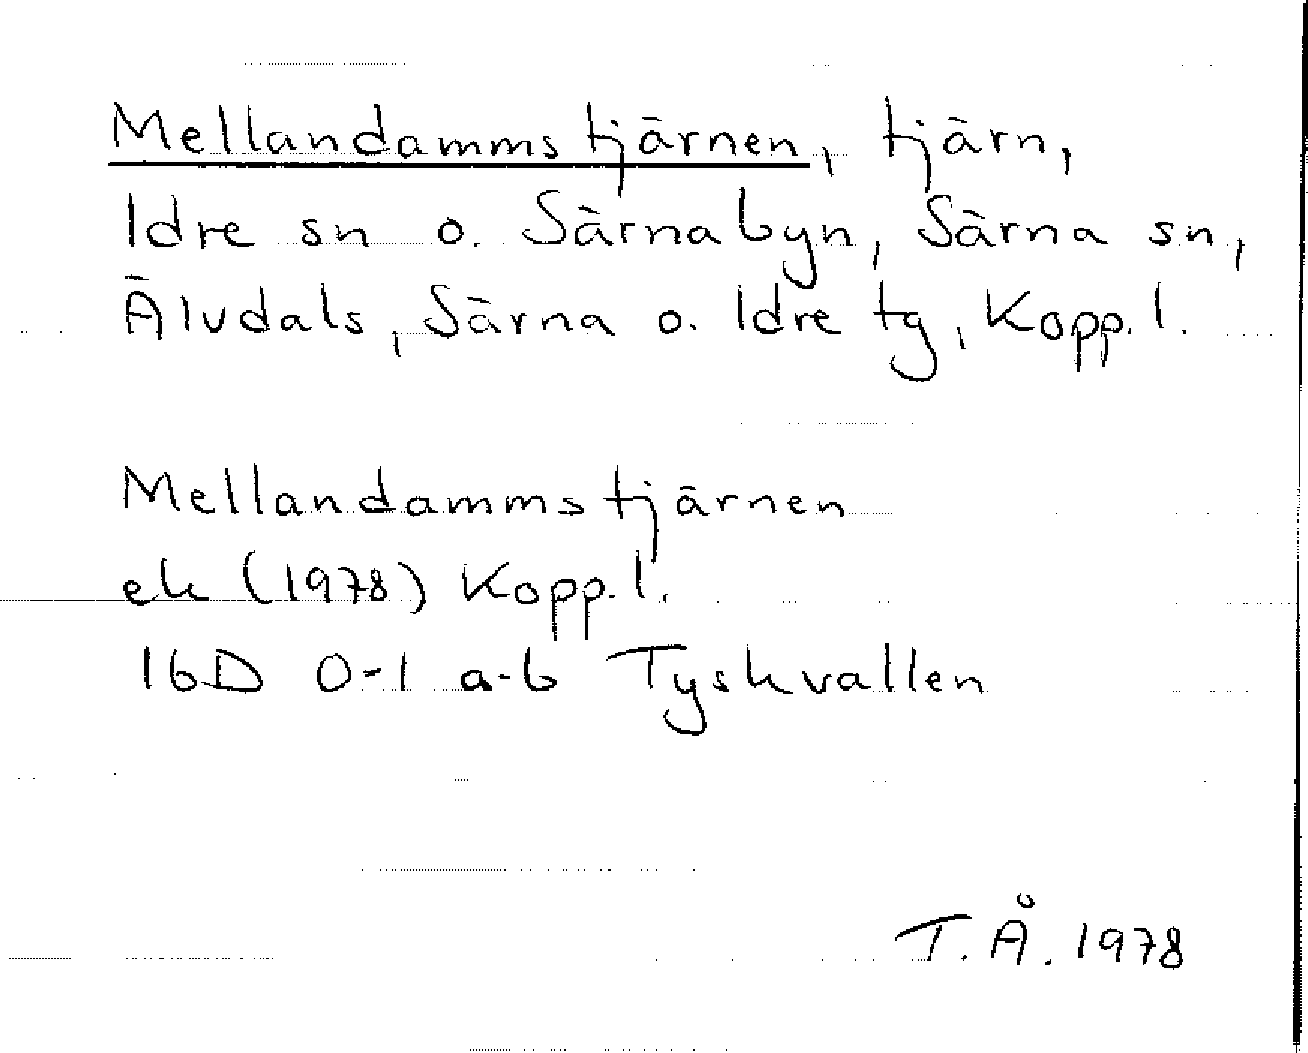 Mellandammstjärnen, tjärn,
Idre sn o. Särnabyn, Särna sn,
Älvdals, Särna o. Idre tg, Kopp. l.
Mellandammstjärnen
ek (1978) Kopp. l.
16D 0-1 a-b Tyskvallen
T. Å. 1978